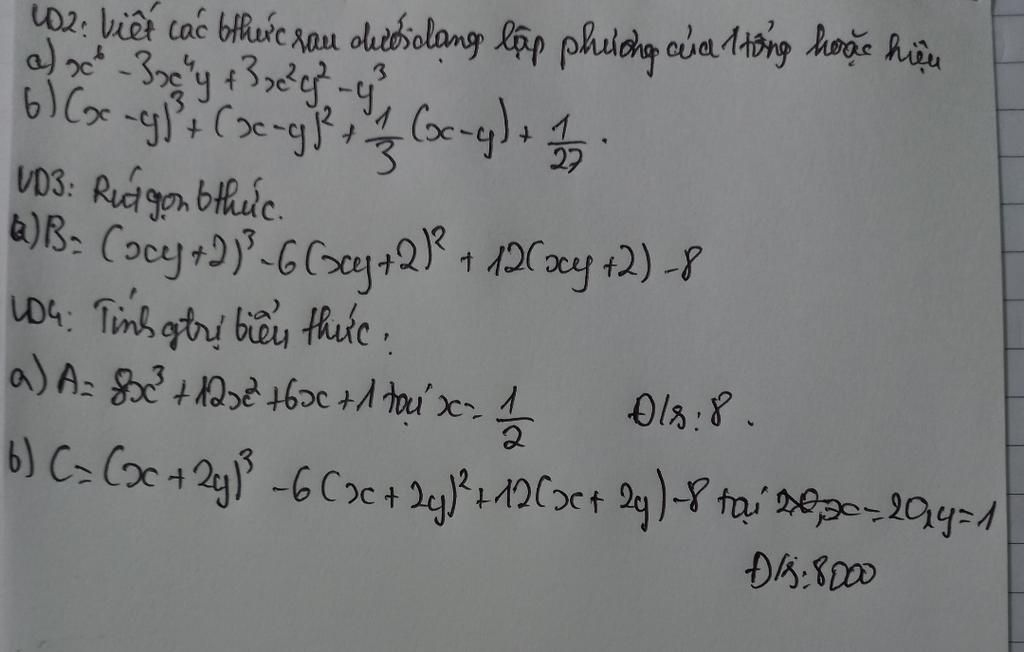 VD2: Viết các bthức sau dưới dạng lập phương của 1 tổng hoặc hiệu
a) x⁶ - 3x⁴y + 3x²y² - y³
b) (x - y)³ + (x - y)² + 1/3 (x - y) + 1/27 .
VD3: Rút gọn bthức.
a) B = (xy + 2)³ - 6(xy + 2)² + 12(xy + 2) - 8
VD4: Tính gtrị biểu thức :
a) A = 8x³ + 12x² + 6x + 1 tại x = 1/2 Đ/s: 8 .
b) C = (x + 2y)³ - 6(x + 2y)² + 12(x + 2y) - 8 tại x = 20, y = 1
Đ/s: 8000